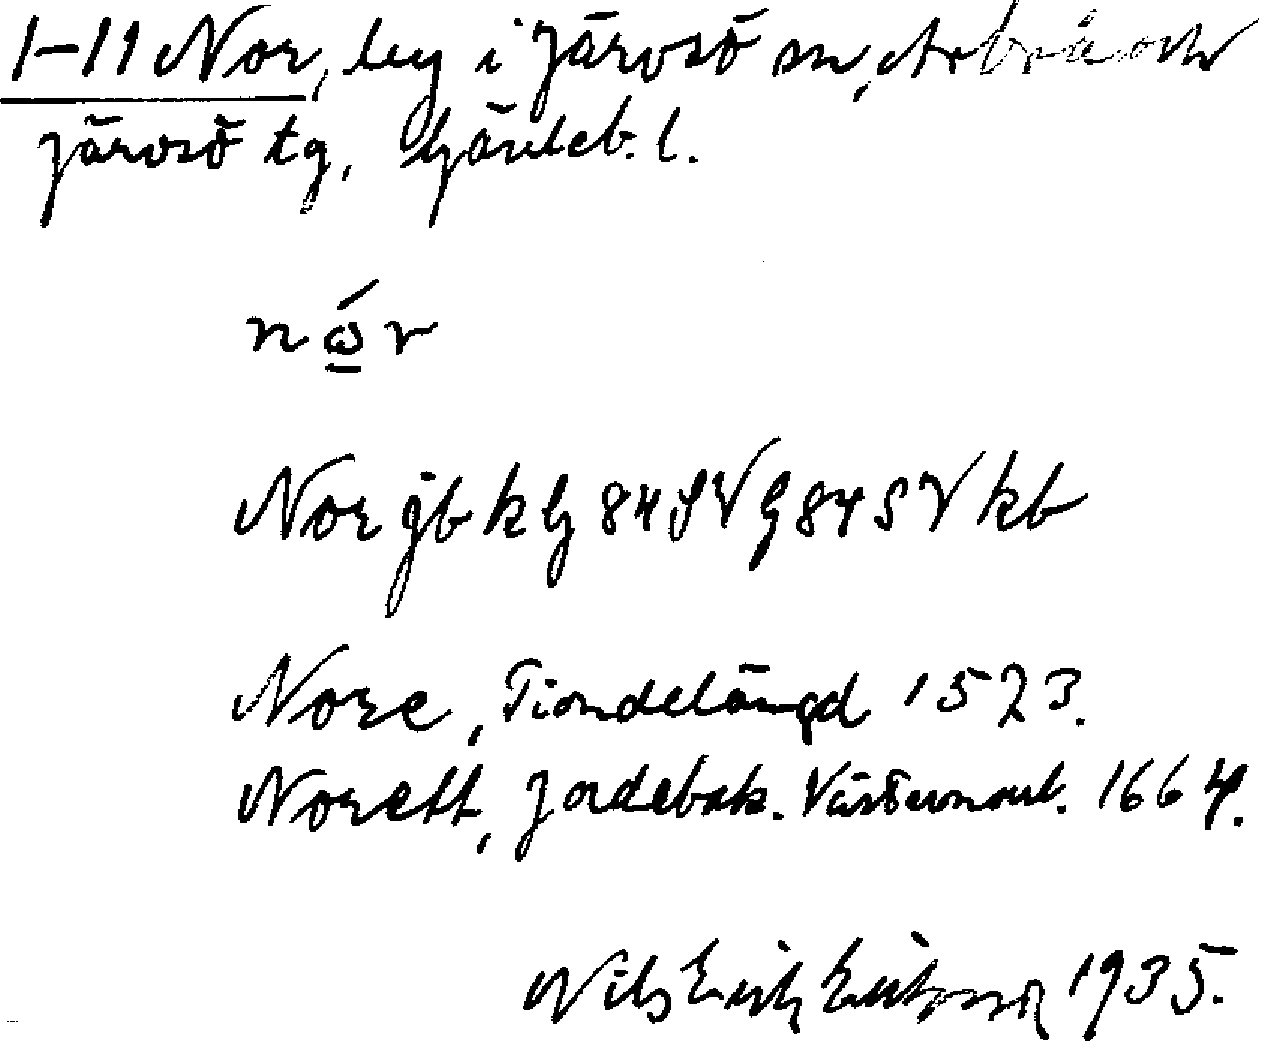 1–11 Nor, by i Järvsö sn, Arbrå och
Järvsö tg, Gävleb. l.
nώr
Nor jb kG 84 SV G 84 SV kb
Nore, Tiondelängd 1573.
Norett, Jordebok. Västernorrl. 1664.
Nils Erik Eriksson 1935.